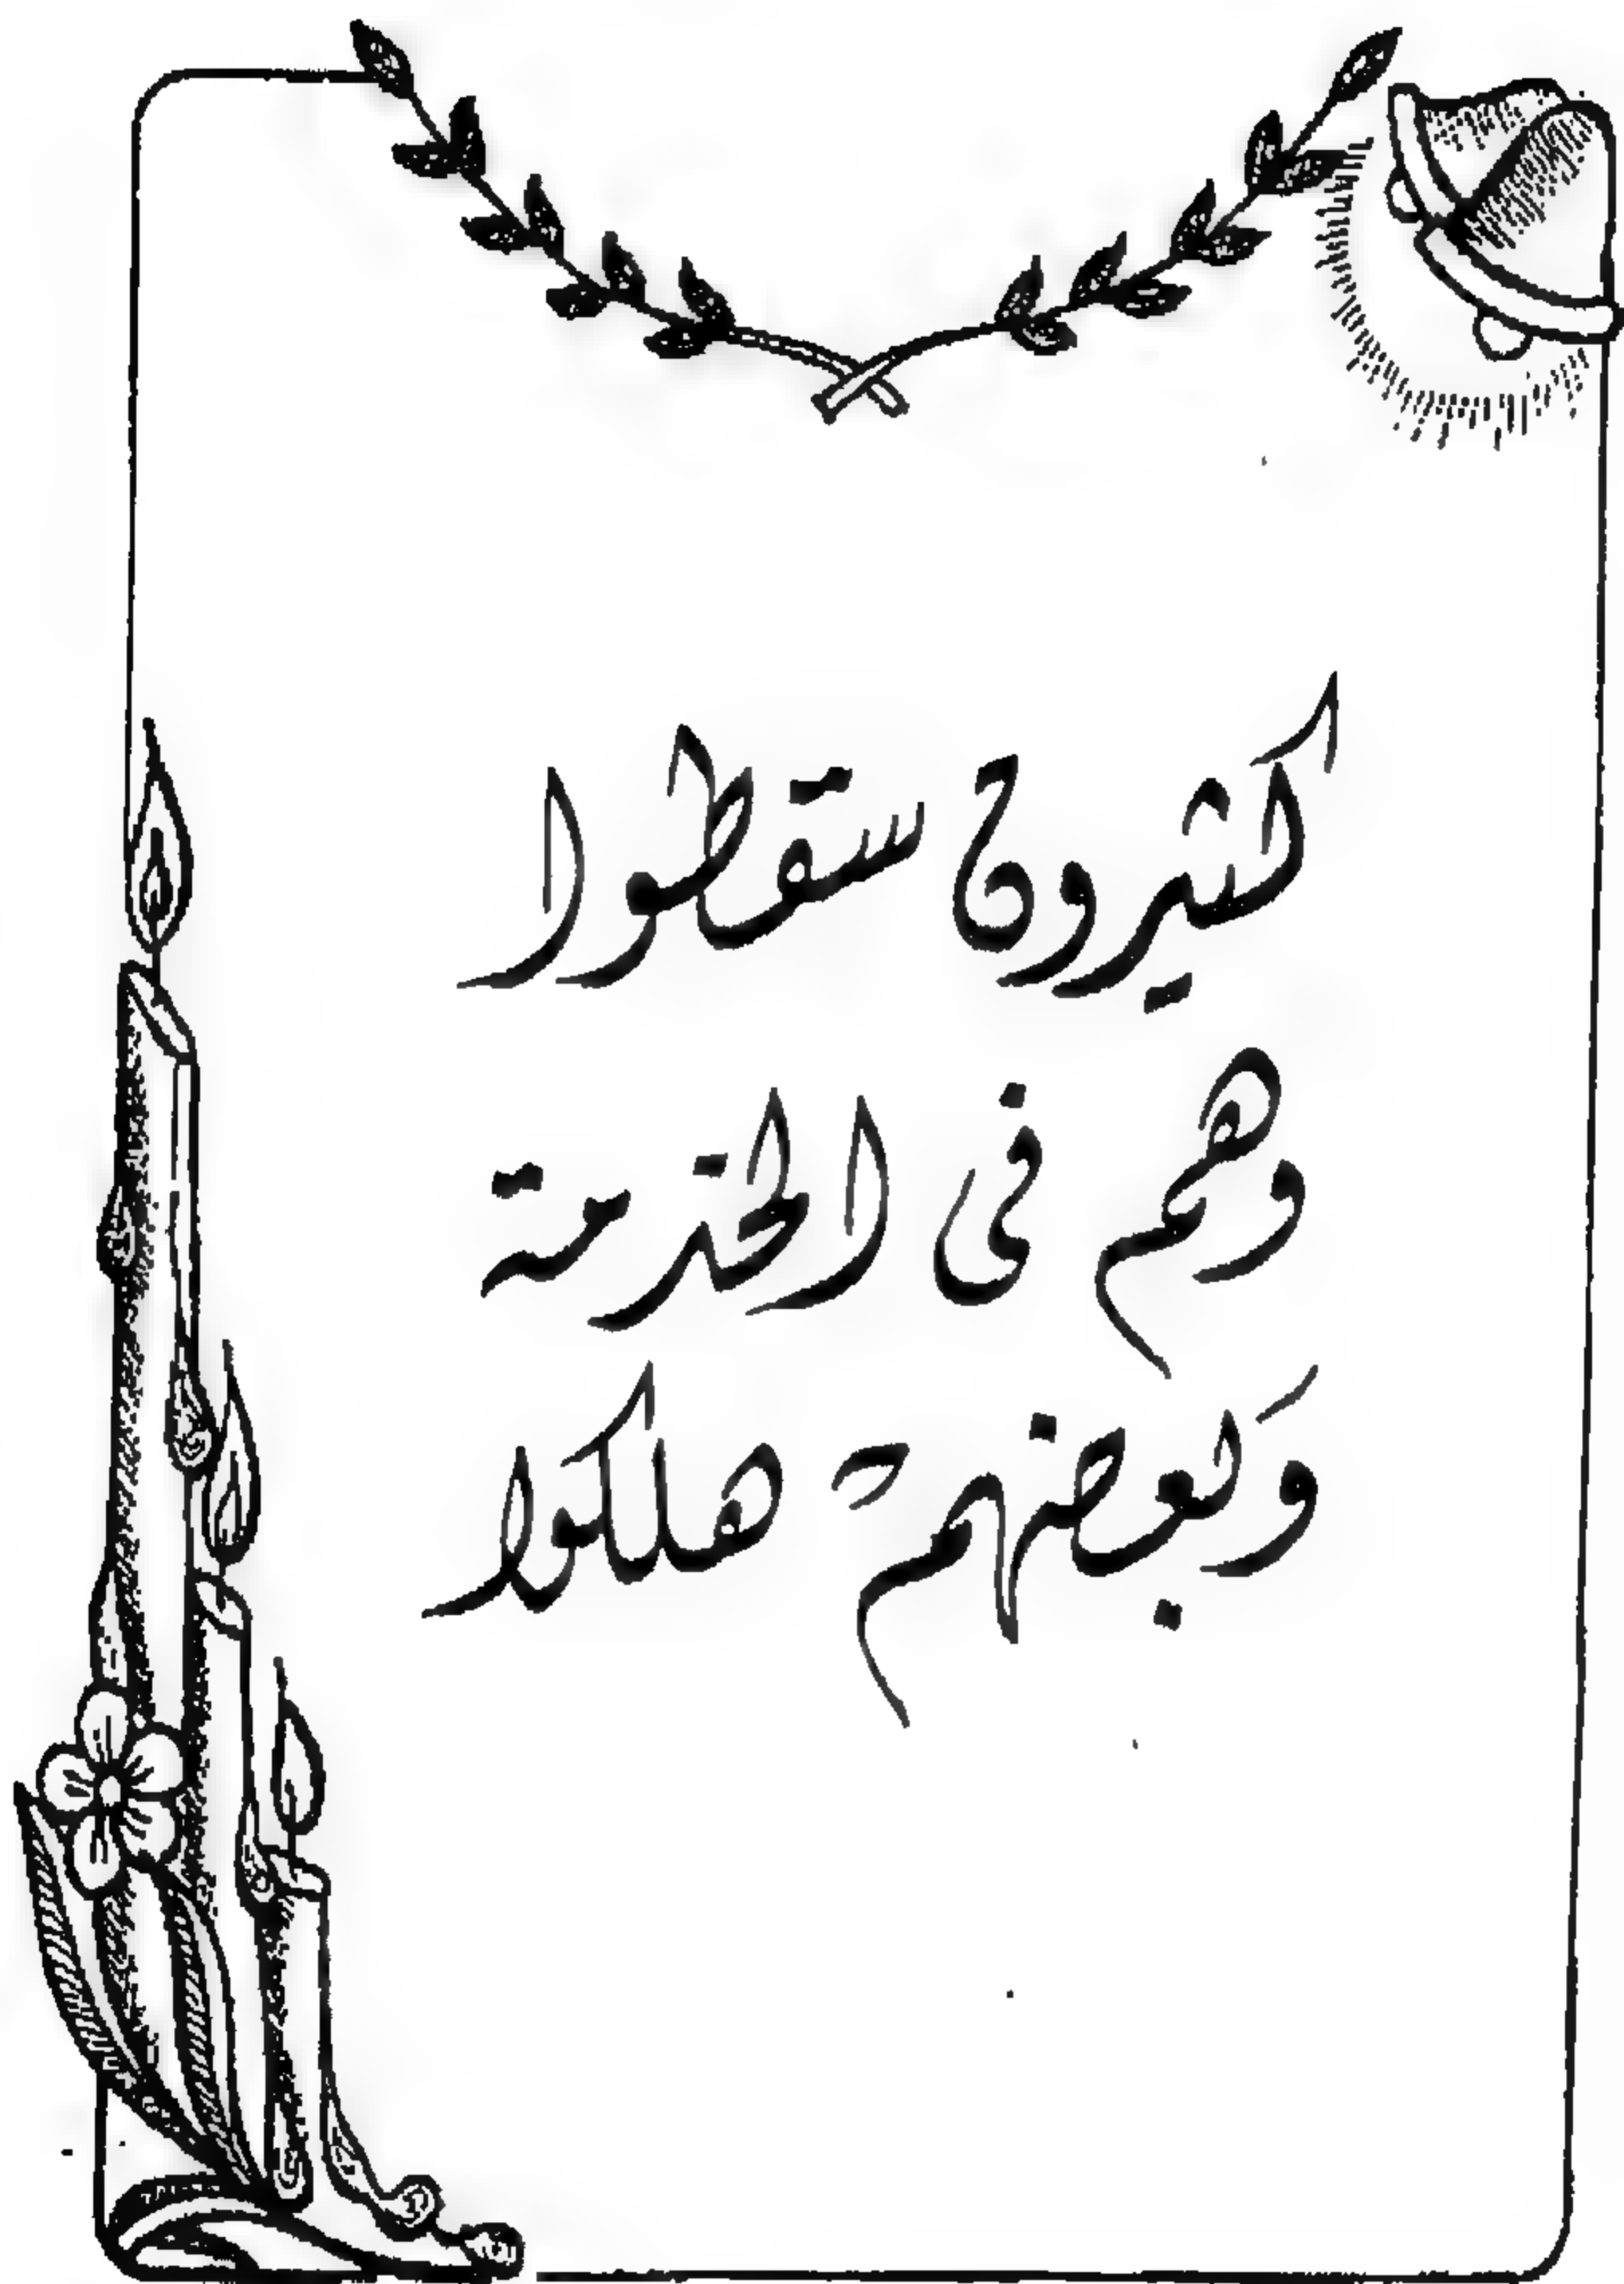 كثيرون سقطوا
وهم فى الخدمة
وَبعضهم هلكوا